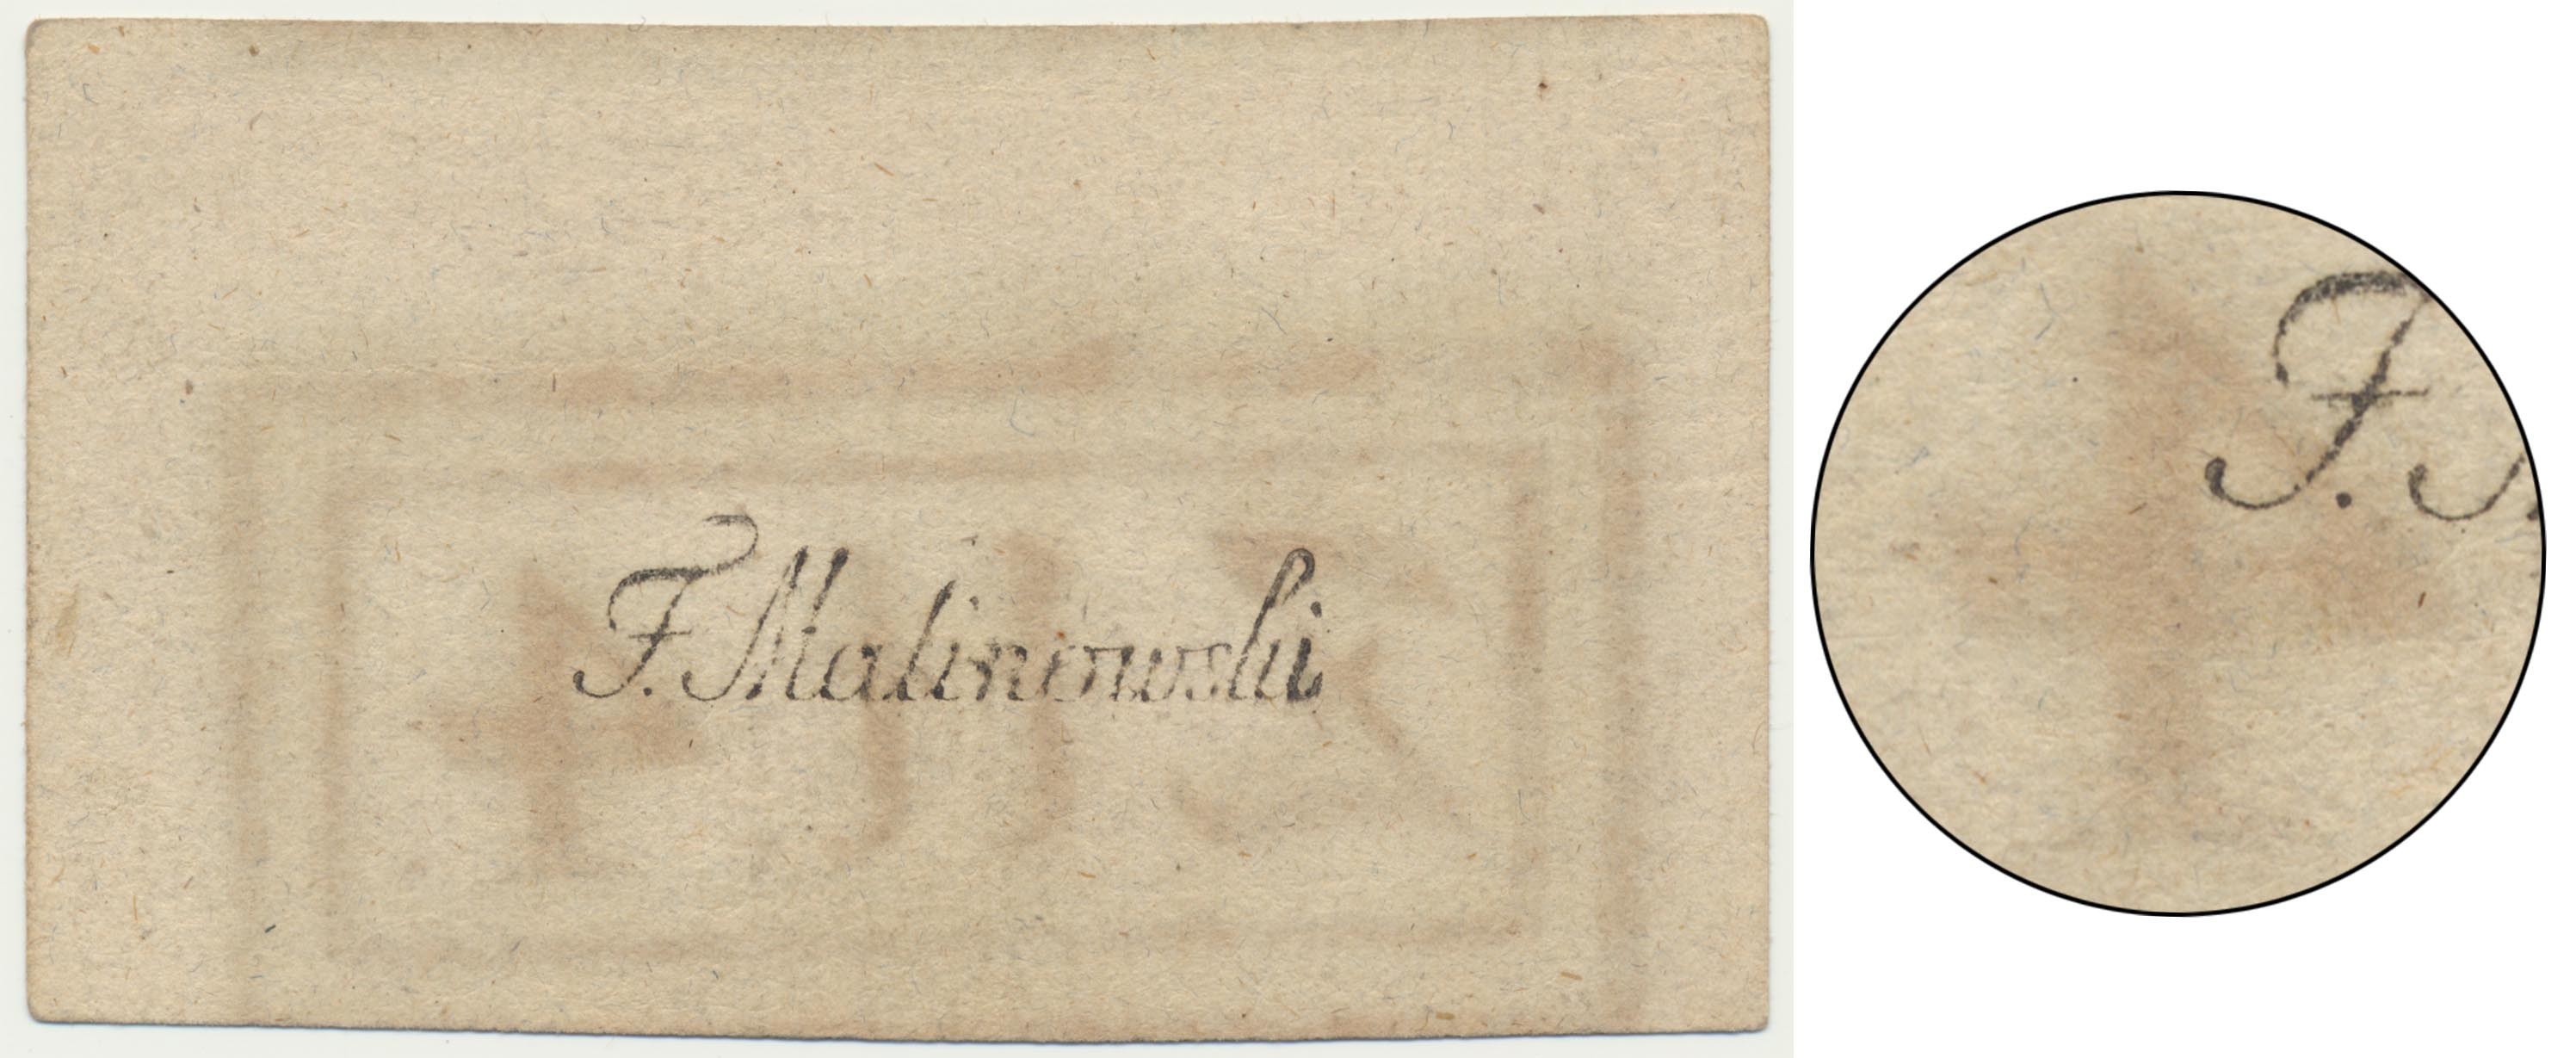 F. Malinowski
F.